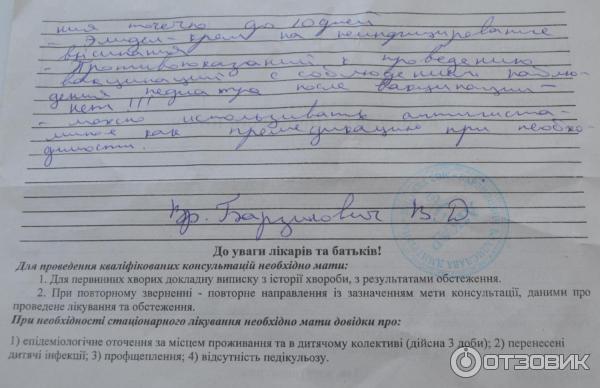 ния точечно до 10 дней
- Элидел-крем на неинфицированные
высыпания
- Противопоказаний к проведению
вакцинаций с соблюдением наблю-
дения педиатра после вакцинации -
нет !!!
- можно использовать антигиста-
мины как премедикацию при необхо-
димости.
Вр. В. Д.
До уваги лікарів та батьків!
Для проведення кваліфікованих консультацій необхідно мати:
1. Для первинних хворих докладну виписку з історії хвороби, з результатами обстеження.
2. При повторному зверненні - повторне направлення із зазначенням мети консультації, даними про
проведене лікування та обстеження.
При необхідності стаціонарного лікування необхідно мати довідки про:
1) епідеміологічне оточення за місцем проживання та в дитячому колективі (дійсна 3 доби); 2) перенесені
дитячі інфекції; 3) профщеплення; 4) відсутність педікульозу.
ОТЗОВИК